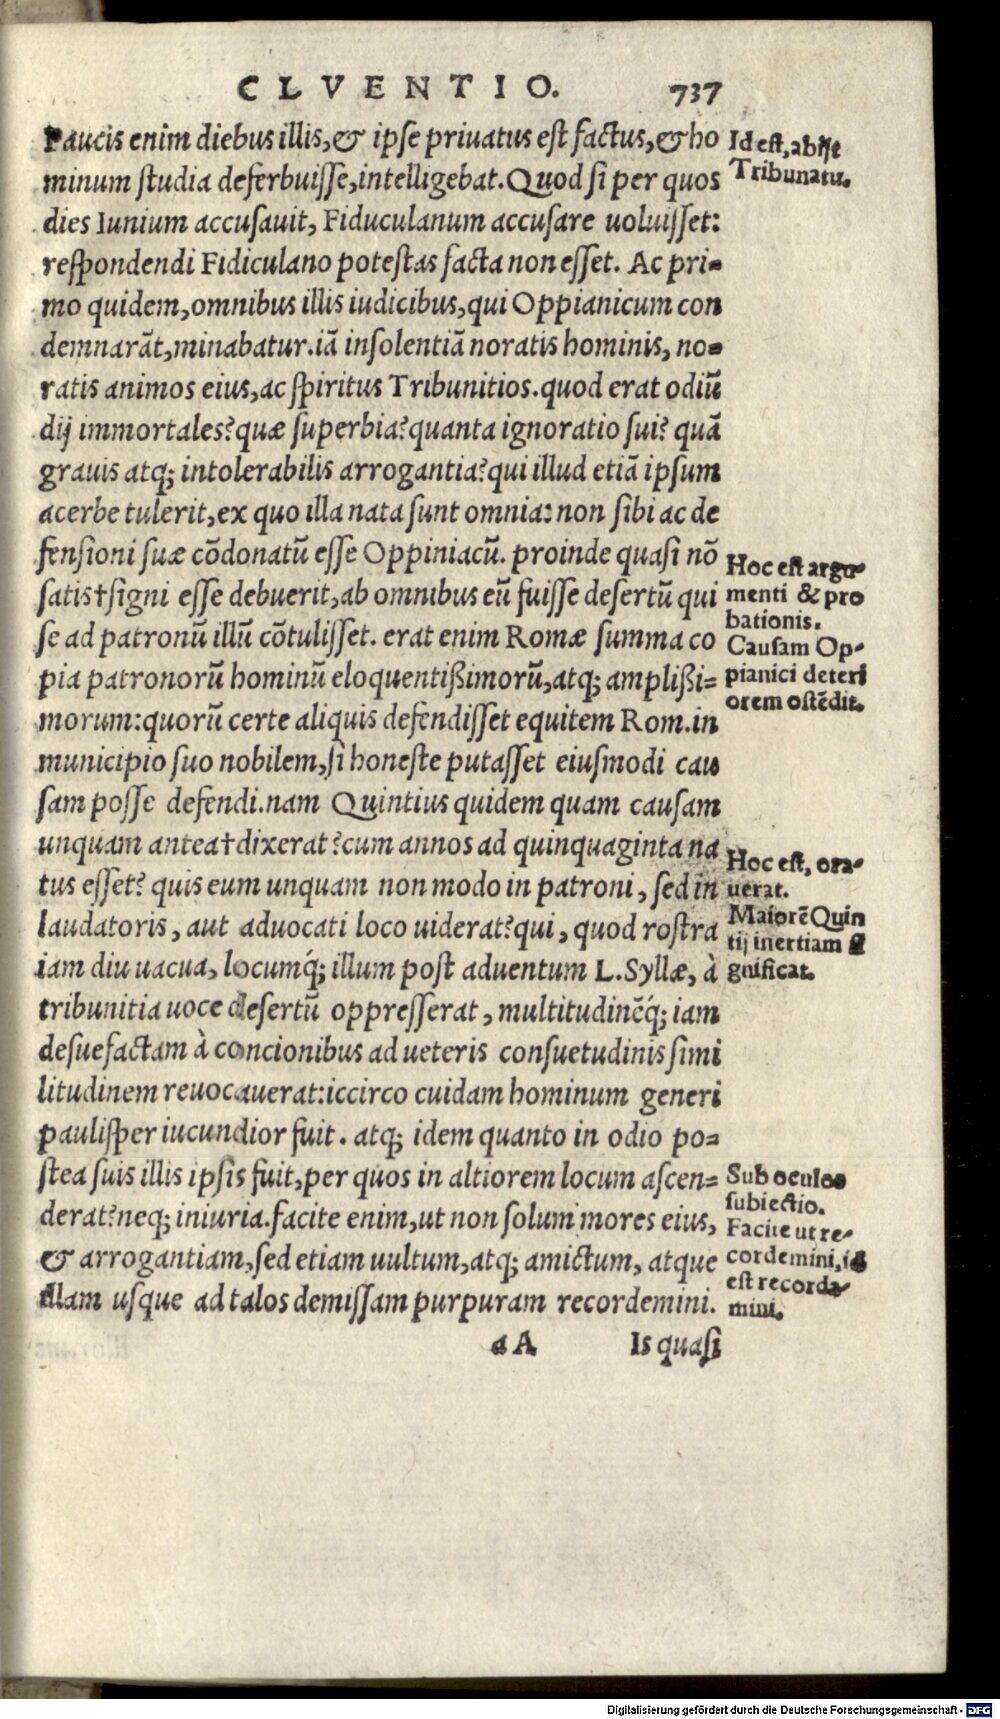 CLVENTIO. 737
Paucis enim diebus illis,& ipse priuatus est factus,& ho
minum studia deferbuisse,intelligebat.Quod si per quos
dies Iunium accusauit, Fiduculanum accusare uoluisset:
respondendi Fidiculano potestas facta non esset. Ac pri=
mo quidem,omnibus illis iudicibus,qui Oppianicum con
demnarāt,minabatur.iā insolentiā noratis hominis, no=
ratis animos eius,ac spiritus Tribunitios.quod erat odiū
dij immortales?quæ superbia?quanta ignoratio sui? quā
grauis atq; intolerabilis arrogantia?qui illud etiā ipsum
acerbe tulerit,ex quo illa nata sunt omnia: non sibi ac de
fensioni suæ cōdonatū esse Oppiniacū. proinde quasi nō
satis†signi esse debuerit,ab omnibus eū fuisse desertū qui
se ad patronū illū cōtulisset. erat enim Romæ summa co
pia patronorū hominū eloquentißimorū,atq; amplißi=
morum:quorū certe aliquis defendisset equitem Rom.in
municipio suo nobilem,si honeste putasset eiusmodi cau
sam posse defendi.nam Quintius quidem quam causam
unquam antea†dixerat?cum annos ad quinquaginta na
tus esset? quis eum unquam non modo in patroni, sed in
laudatoris, aut aduocati loco uiderat?qui, quod rostra
iam diu uacua, locumq́; illum post aduentum L.Syllæ, à
tribunitia uoce desertū oppresserat, multitudinēq́; iam
desuefactam à concionibus ad ueteris consuetudinis simi
litudinem reuocauerat:iccirco cuidam hominum generi
paulisper iucundior fuit. atq; idem quanto in odio po=
stea suis illis ipsis fuit,per quos in altiorem locum ascen=
derat?neq; iniuria.facite enim,ut non solum mores eius,
& arrogantiam,sed etiam uultum,atq; amictum, atque
illam usque ad talos demissam purpuram recordemini.
aA Is quasi
Id est, abijt
Tribunatu.
Hoc est argu-
menti & pro
bationis.
Causam Op-
pianici deteri
orem ostēdit.
Hoc est, ora-
uerat.
Maiorē Quin
tij inertiam si
gnificat.
Sub oculos
subiectio.
Facite ut re-
cordemini, id
est recorda-
mini.
Digitalisierung gefördert durch die Deutsche Forschungsgemeinschaft - DFG